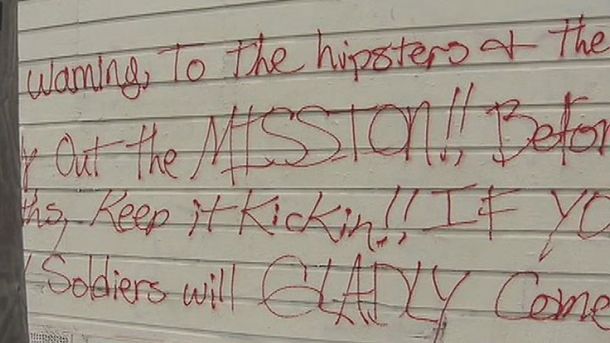 warning, To the hipsters & the
Out the MISSION!! Before
ths, Keep it kickin!! If YO
Soldiers will GLADLY Come